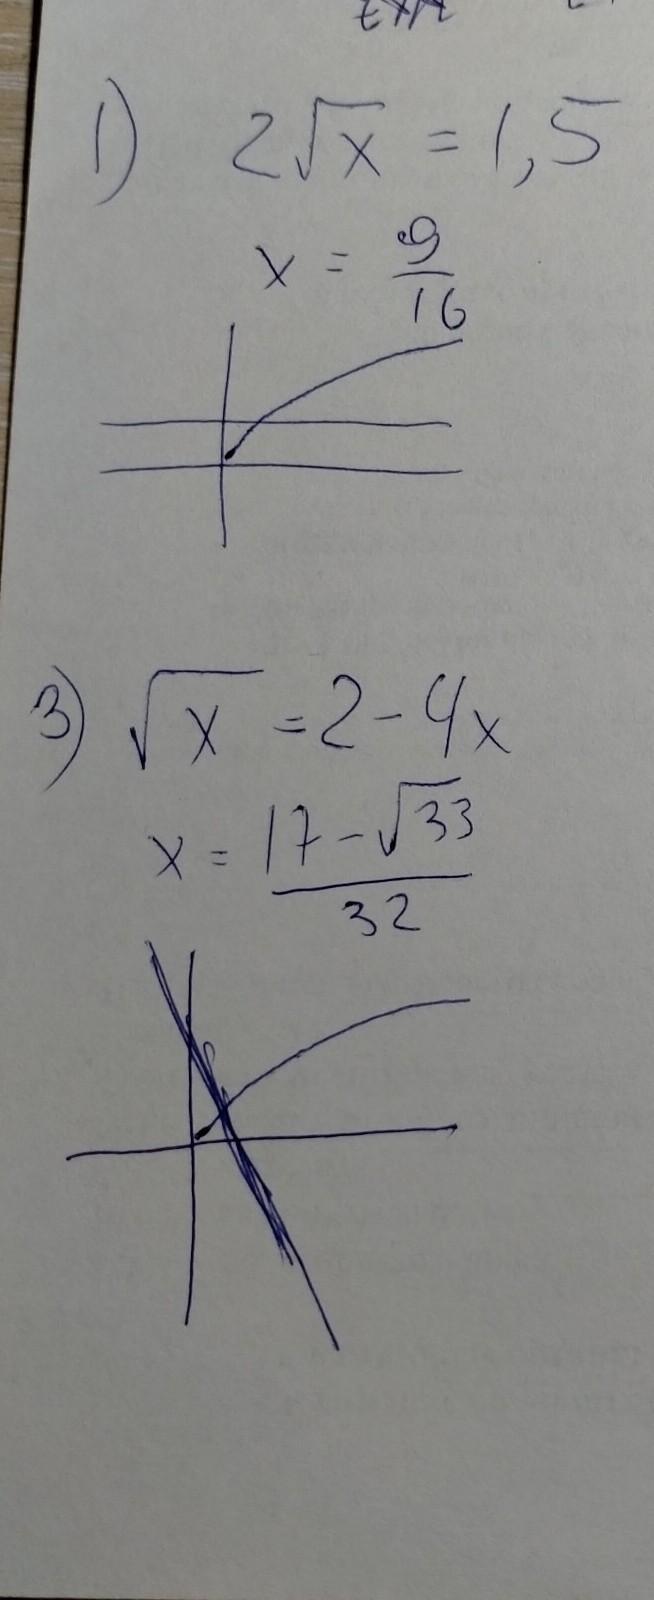 1) 2√x = 1,5
x = 9/16
3) √x = 2 - 4x
x = (17 - √33)/32